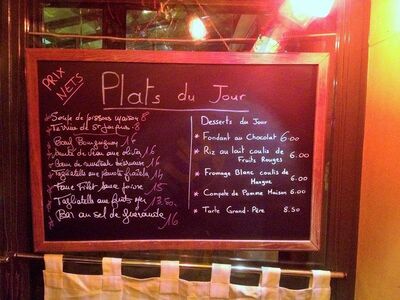 PRIX
NETS
Plats du Jour
Soupe de poissons maison 8
Terrine de St Jacques 8
Boeuf Bourguignon
Sauté de veau aux olives 16
16
Tagliatelle aux pâtes fraîches 14
Faux Filet sauce poivre 15
Tagliatelle aux fruits mer 13.50
Bar au sel de guerande 16
Desserts du Jour
* Fondant au Chocolat 6.00
* Riz au lait coulis de
Fruits Rouges 6.00
* Fromage Blanc coulis de
Mangue 6.00
* Compote de Pomme Maison 6.00
* Tarte Grand-Père 8.50